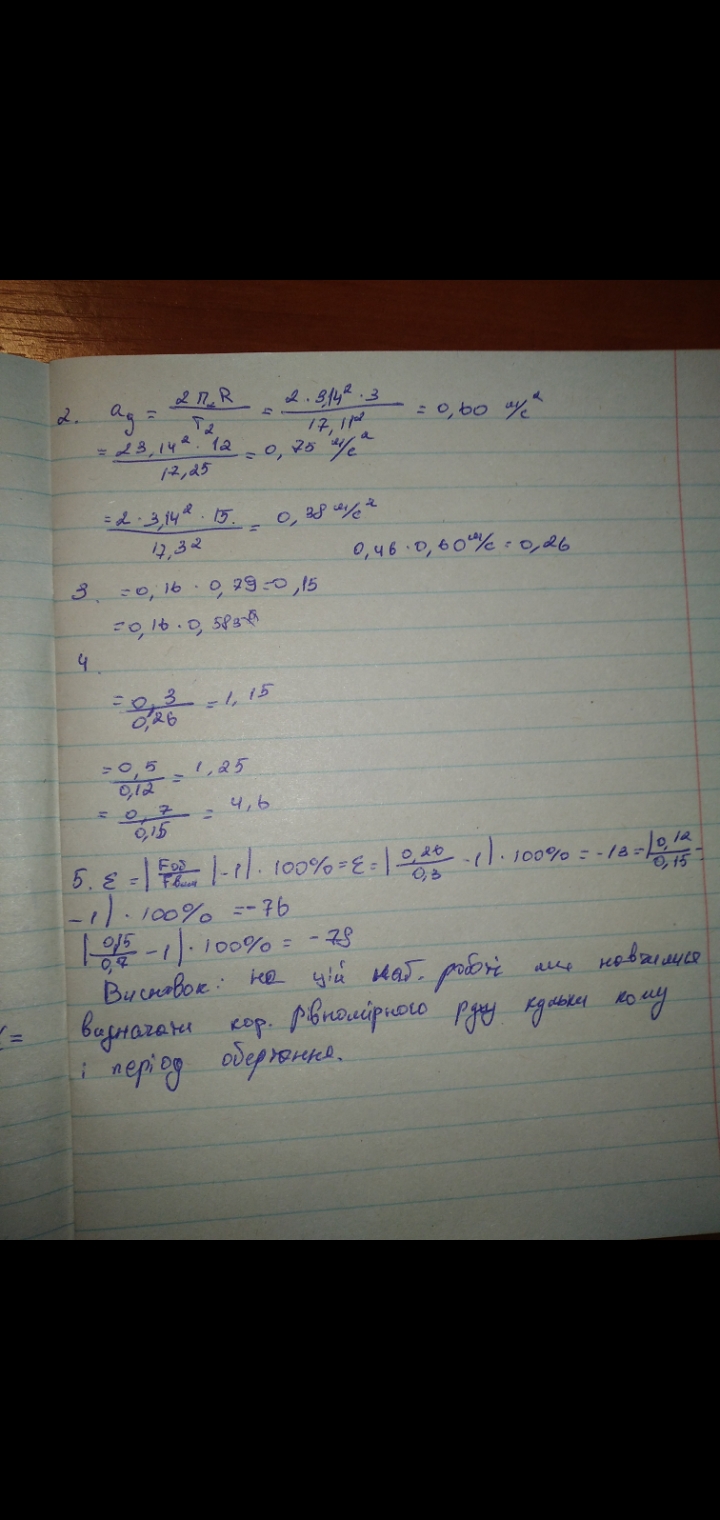 2. a_g = 2π_2R / T_2 = 2 · 3,14² · 3 / 17,11² = 0,60 м/с²
= 23,14² · 12 / 17,25 = 0,75 м/с²
= 2 · 3,14² · 15. / 17,32 = 0,38 м/с²
0,46 · 0,60 м/с = 0,26
3. = 0,16 · 0,79 = 0,15
= 0,16 · 0,38
4.
= 0,3 / 0,26 = 1,15
= 0,5 / 0,12 = 1,25
= 0,7 / 0,15 = 4,6
5. ε = | Fоб / Fвим | -1| · 100% = ε = | 0,26 / 0,3 -1| · 100% = -13 = | 0,12 / 0,15 -
-1| · 100% = -76
| 0,15 / 0,7 -1| · 100% = -79
Висновок: на цій лаб. роботі ми навчилися
визначати кор. рівномірного руху кульки кому
і період обертання.
х =